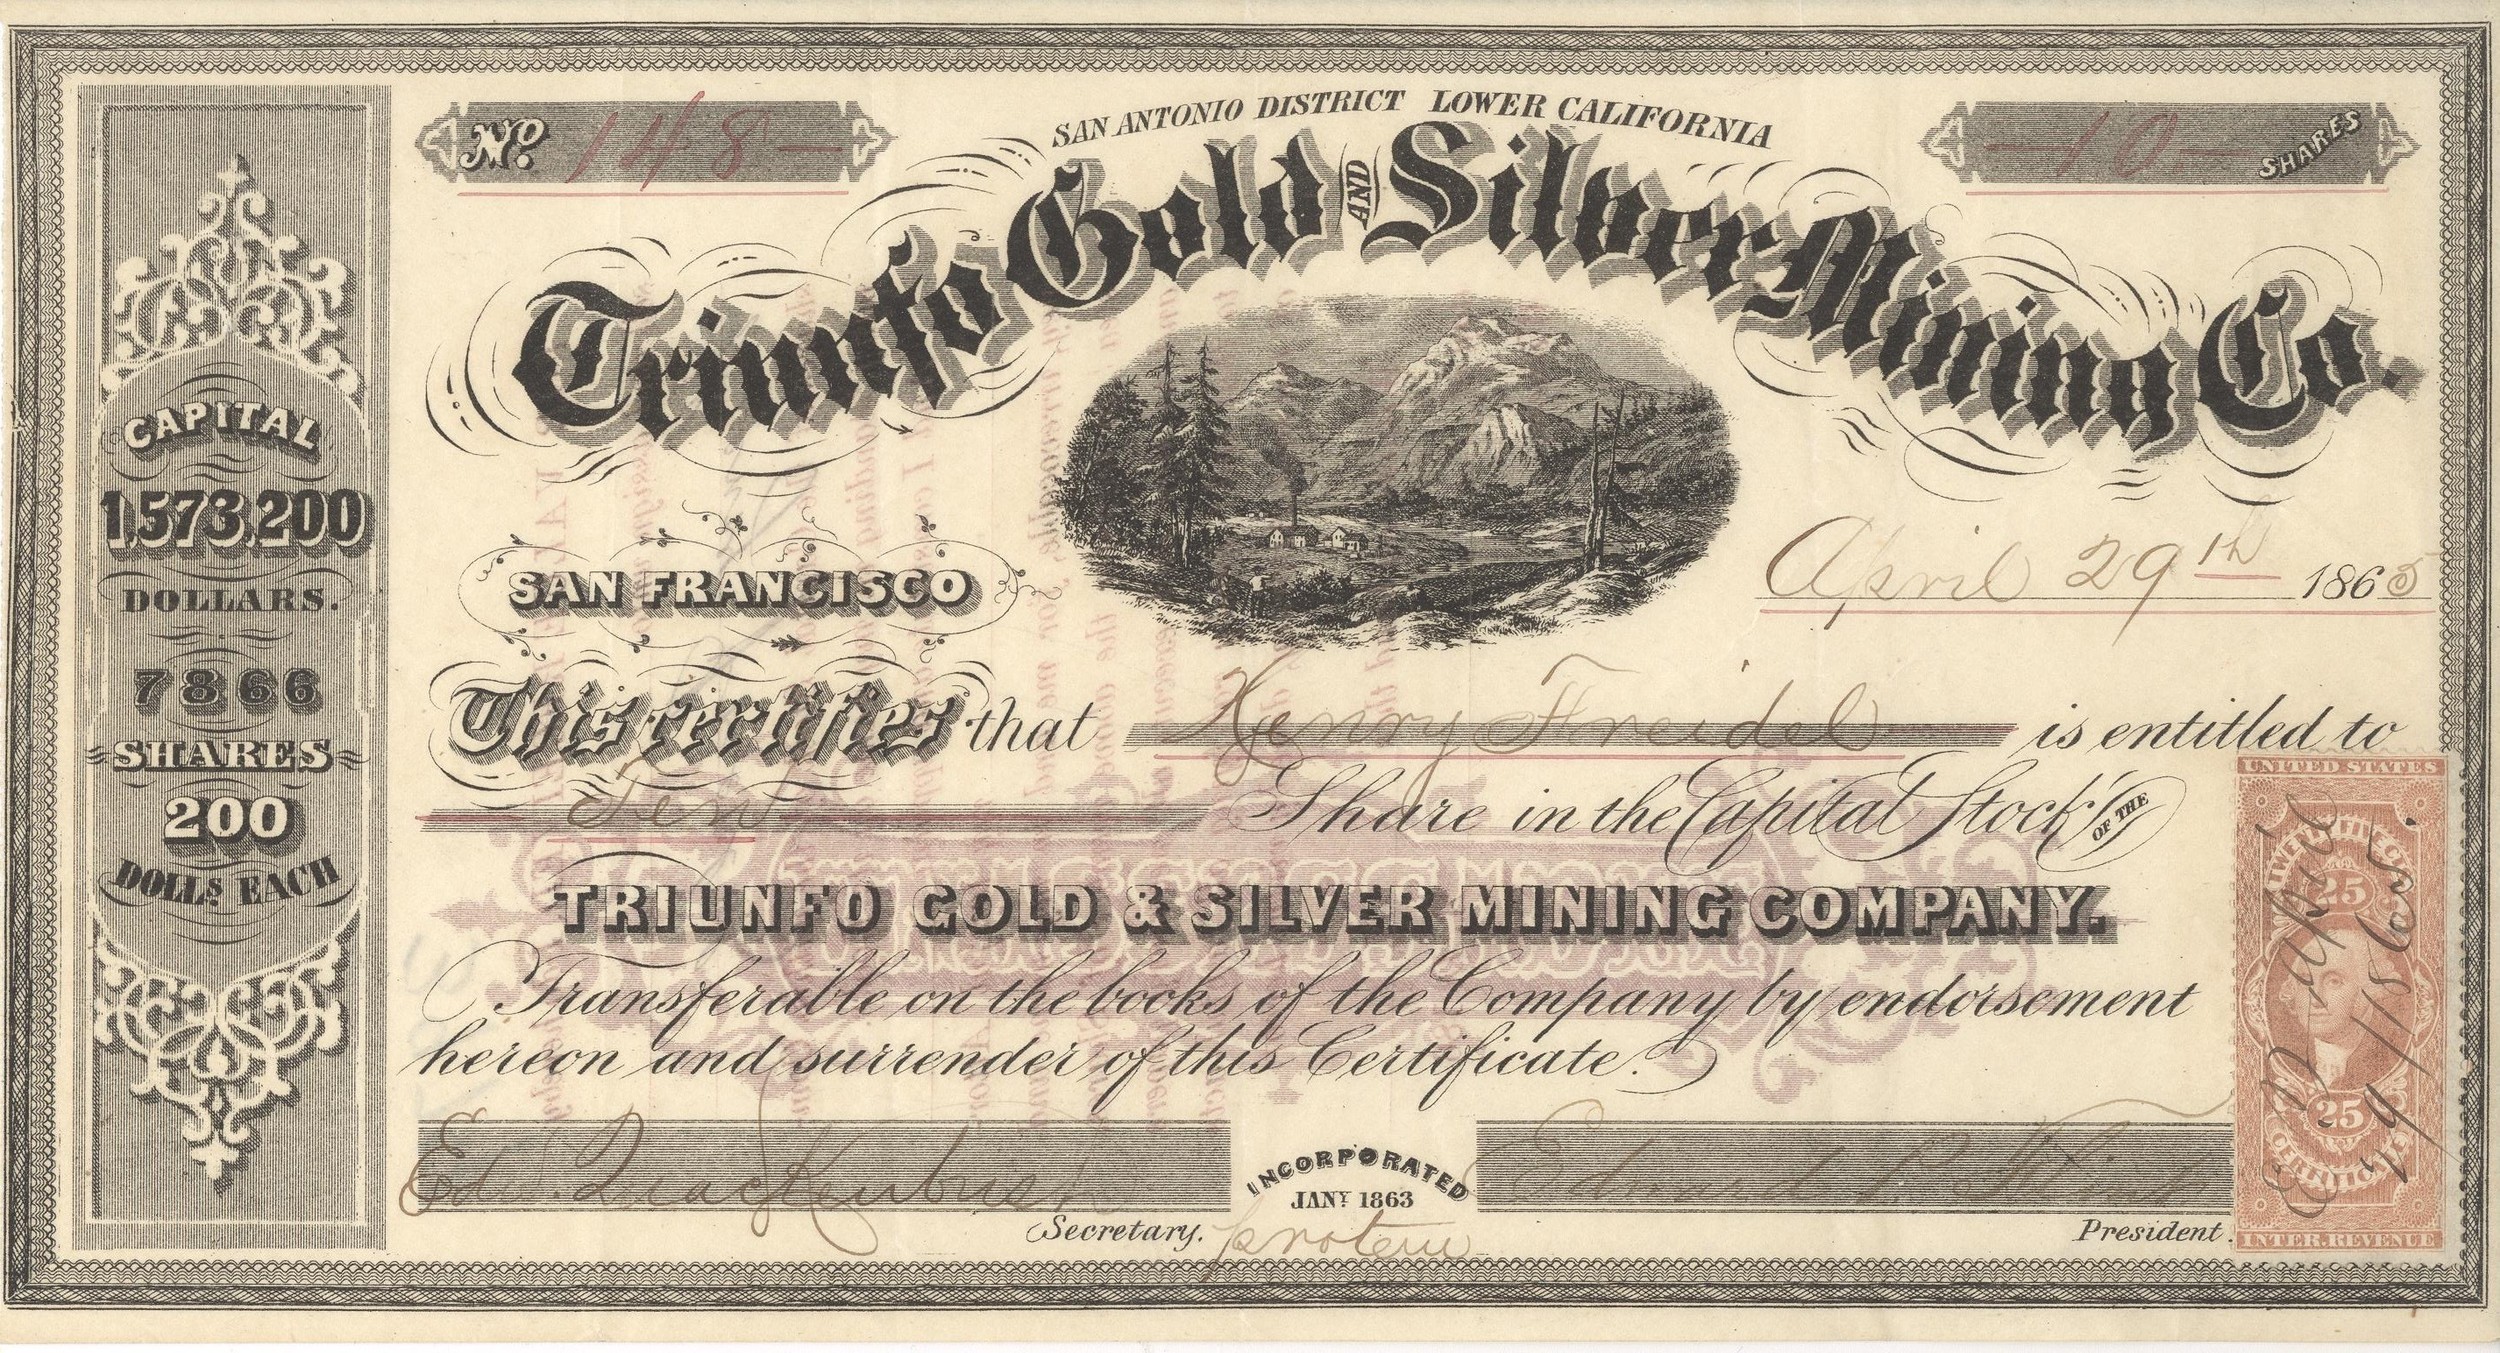 No. 148
SAN ANTONIO DISTRICT LOWER CALIFORNIA
10 SHARES
Triunfo Gold AND Silver Mining Co.
CAPITAL
1,573,200
DOLLARS.
7866
SHARES
200
DOLLS EACH
SAN FRANCISCO
April 29th 1865
This certifies that Henry Freidel is entitled to
Ten Share in the Capital Stock OF THE
TRIUNFO GOLD & SILVER MINING COMPANY.
Transferable on the books of the Company by endorsement
hereon and surrender of this Certificate.
Edw. Quackenbush
Secretary. protem
INCORPORATED
JANY 1863
Edward
President.
UNITED STATES
TWENTY FIVE CTS
25
25
CERTIFICATE
INTER. REVENUE
April
29/1865.